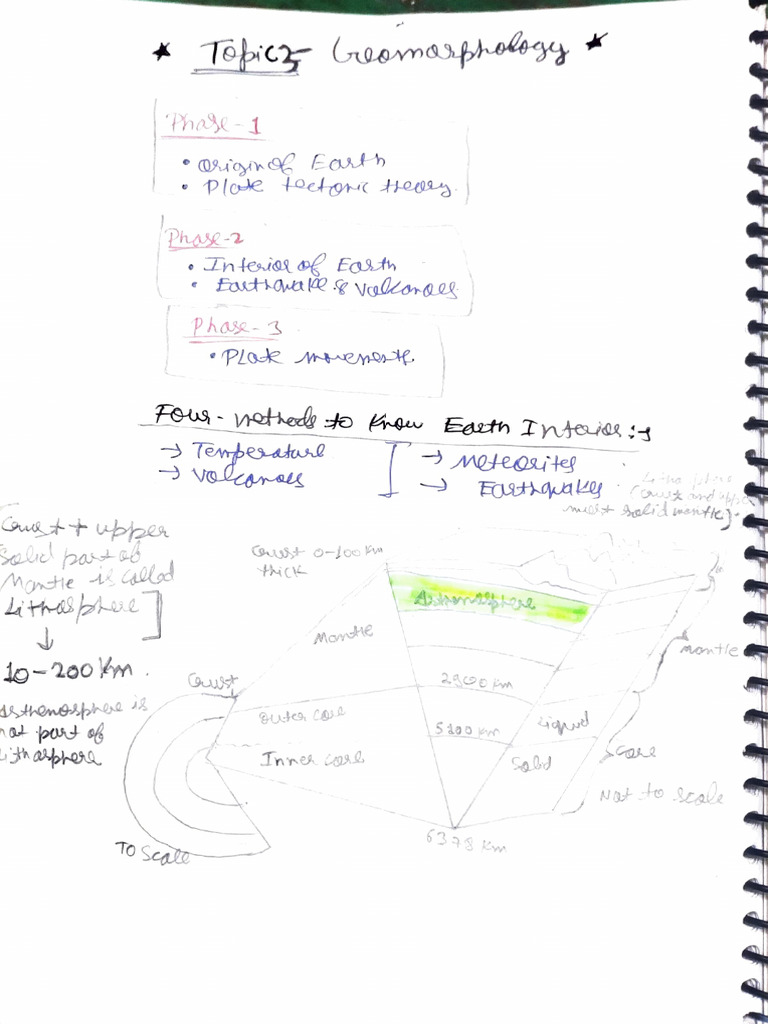 ★ Topic:- Geomorphology ★
Phase - 1
• Origin of Earth
• Plate tectonic theory.
Phase-2
• Interior of Earth
• Earthquake & Volcanoes
Phase - 3
• Plate movements.
Four-methods to Know Earth Interior:-
→ Temperature
→ Volcanoes
→ Meteorites
→ Earthquakes
Lithosphere
(Crust and upper
most solid mantle).
Crust + upper
Solid part of
Mantle is called
Lithosphere
↓
10-200 Km.
Asthenosphere is
not part of
Lithosphere
Crust 0-100 Km
thick
Asthenosphere
Mantle
Mantle
2900 Km
Crust
Outer core
Liquid
5100 km
Inner core
Solid
Core
Not to scale
6378 Km
To Scale